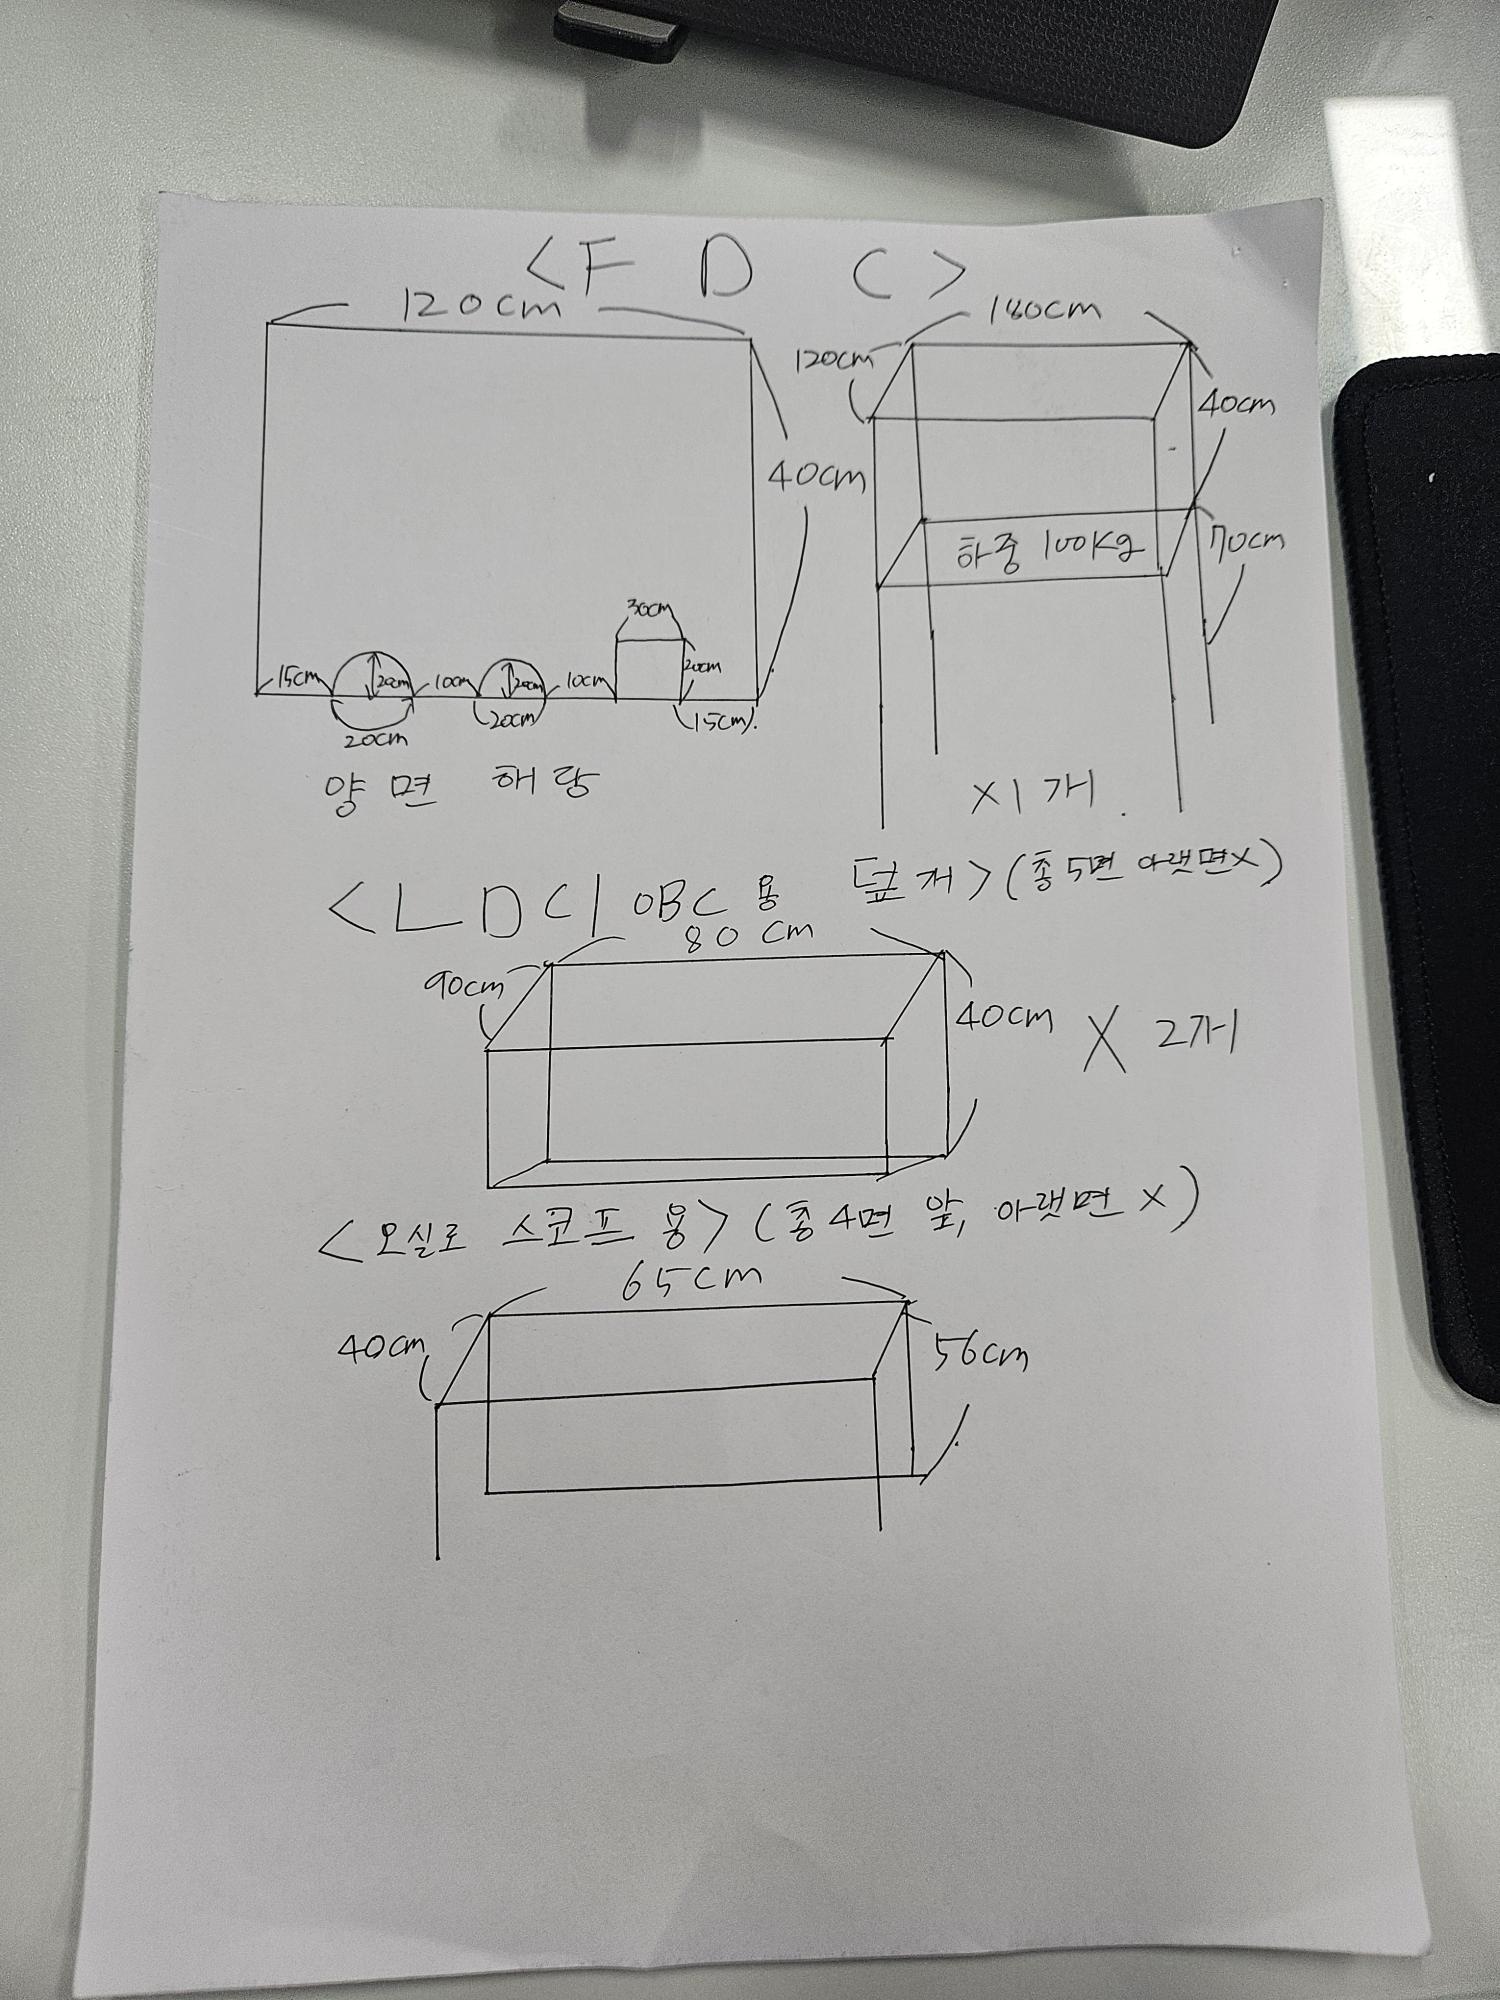 <F D C>
120cm
40cm
15cm 20cm 10cm 20cm 10cm 30cm 20cm
20cm 20cm 15cm
양면 해당
180cm
120cm
40cm
하중 100kg
70cm
x1개
<LDC | OBC용 덮개> (총 5면 아랫면X)
80cm
90cm
40cm
X 2개
<오실로 스코프 용> (총 4면 앞, 아랫면 X)
65cm
40cm
56cm